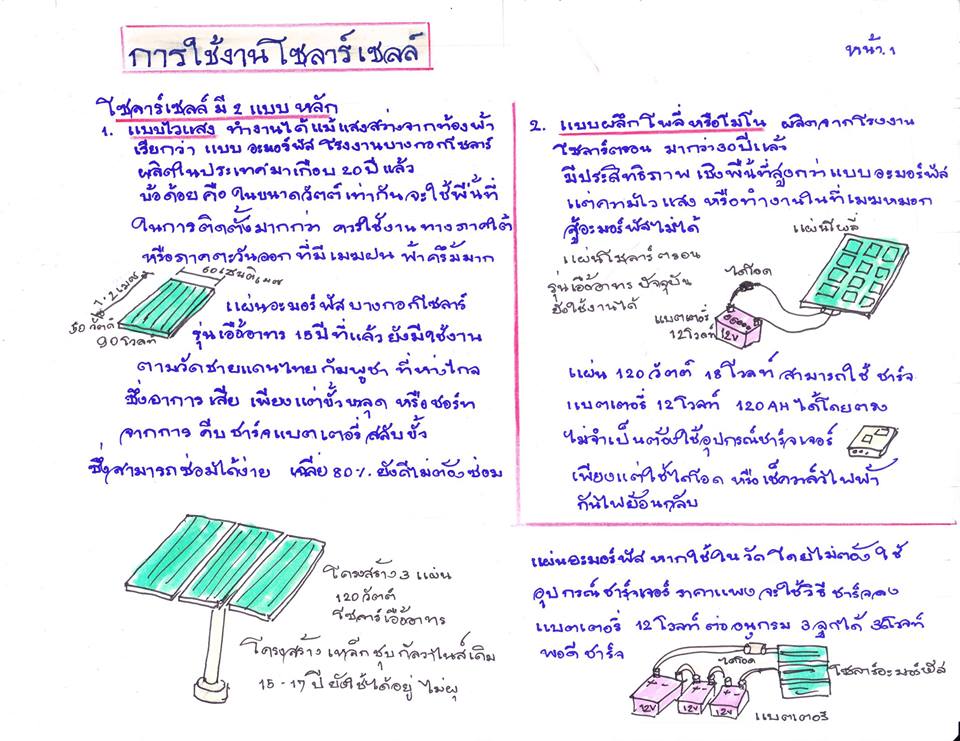 การใช้งานโซลาร์เซลล์
หน้า.1
โซลาร์เซลล์ มี 2 แบบ หลัก
1. แบบไวแสง ทำงานได้แม้แสงสว่างจากท้องฟ้า
เรียกว่า แบบ อะมอร์ฟัส โรงงานบางกอกโซลาร์
ผลิตในประเทศมาเกือบ 20 ปี แล้ว
ข้อด้อย คือ ในขนาดวัตต์เท่ากัน จะใช้พื้นที่
ในการติดตั้งมากกว่า ควรใช้งานทางภาคใต้
หรือภาคตะวันออก ที่มีเมฆฝน ฟ้าครึ้มมาก
60 เซนติเมตร
1.2 เมตร
30 วัตต์
90 โวลท์
แผ่นอะมอร์ฟัส บางกอกโซลาร์
รุ่นเอื้ออาทร 15 ปี ที่แล้ว ยังมีใช้งาน
ตามวัดชายแดนไทย กัมพูชา ที่ห่างไกล
ซึ่งอาการเสีย เพียงแต่ขั้วหลุด หรือช็อร์ท
จากการ คีบชาร์จแบตเตอรี่ สลับขั้ว
ซึ่งสามารถซ่อมได้ง่าย เฉลี่ย 80% ยังดีไม่ต้องซ่อม
โครงสร้าง 3 แผ่น
120 วัตต์
โซลาร์เอื้ออาทร
โครงสร้าง เหล็กชุบกัลวาไนส์เดิม
15 - 17 ปี ยังใช้ได้อยู่ ไม่ผุ
2. แบบผลึกโพลี่หรือโมโน ผลิตจากโรงงาน
โซลาร์ตรอน มากว่า 30 ปีแล้ว
มีประสิทธิภาพ เชิงพื้นที่สูงกว่าแบบอะมอร์ฟัส
แต่ความไวแสง หรือทำงานในที่เมฆหมอก
สู้อะมอร์ฟัสไม่ได้
แผ่นโพลี่
แผ่นโซลาร์ตรอน
รุ่นเอื้ออาทร ปัจจุบัน
ยังใช้งานได้
ไดโอด
แบตเตอรี่
12 โวลท์
12V
แผ่น 120 วัตต์ 18 โวลท์ สามารถใช้ ชาร์จ
แบตเตอรี่ 12 โวลท์ 120 AH ได้โดยตรง
ไม่จำเป็นต้องใช้อุปกรณ์ชาร์จเจอร์
เพียงแต่ใช้ไดโอด หรือเช็ควาล์วไฟฟ้า
กันไฟย้อนกลับ
แผ่นอะมอร์ฟัส หากใช้ใน วัดโดยไม่ต้องใช้
อุปกรณ์ชาร์จเจอร์ ราคาแพง จะใช้วิธี ชาร์จลง
แบตเตอรี่ 12 โวลท์ ต่ออนุกรม 3 ลูกได้ 36 โวลท์
พอดี ชาร์จ
ไดโอด
โซลาร์อะมอร์ฟัส
12V
12V
12V
แบตเตอรี่